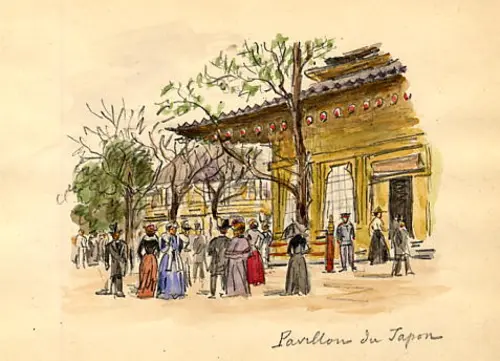 Pavillon du Japon